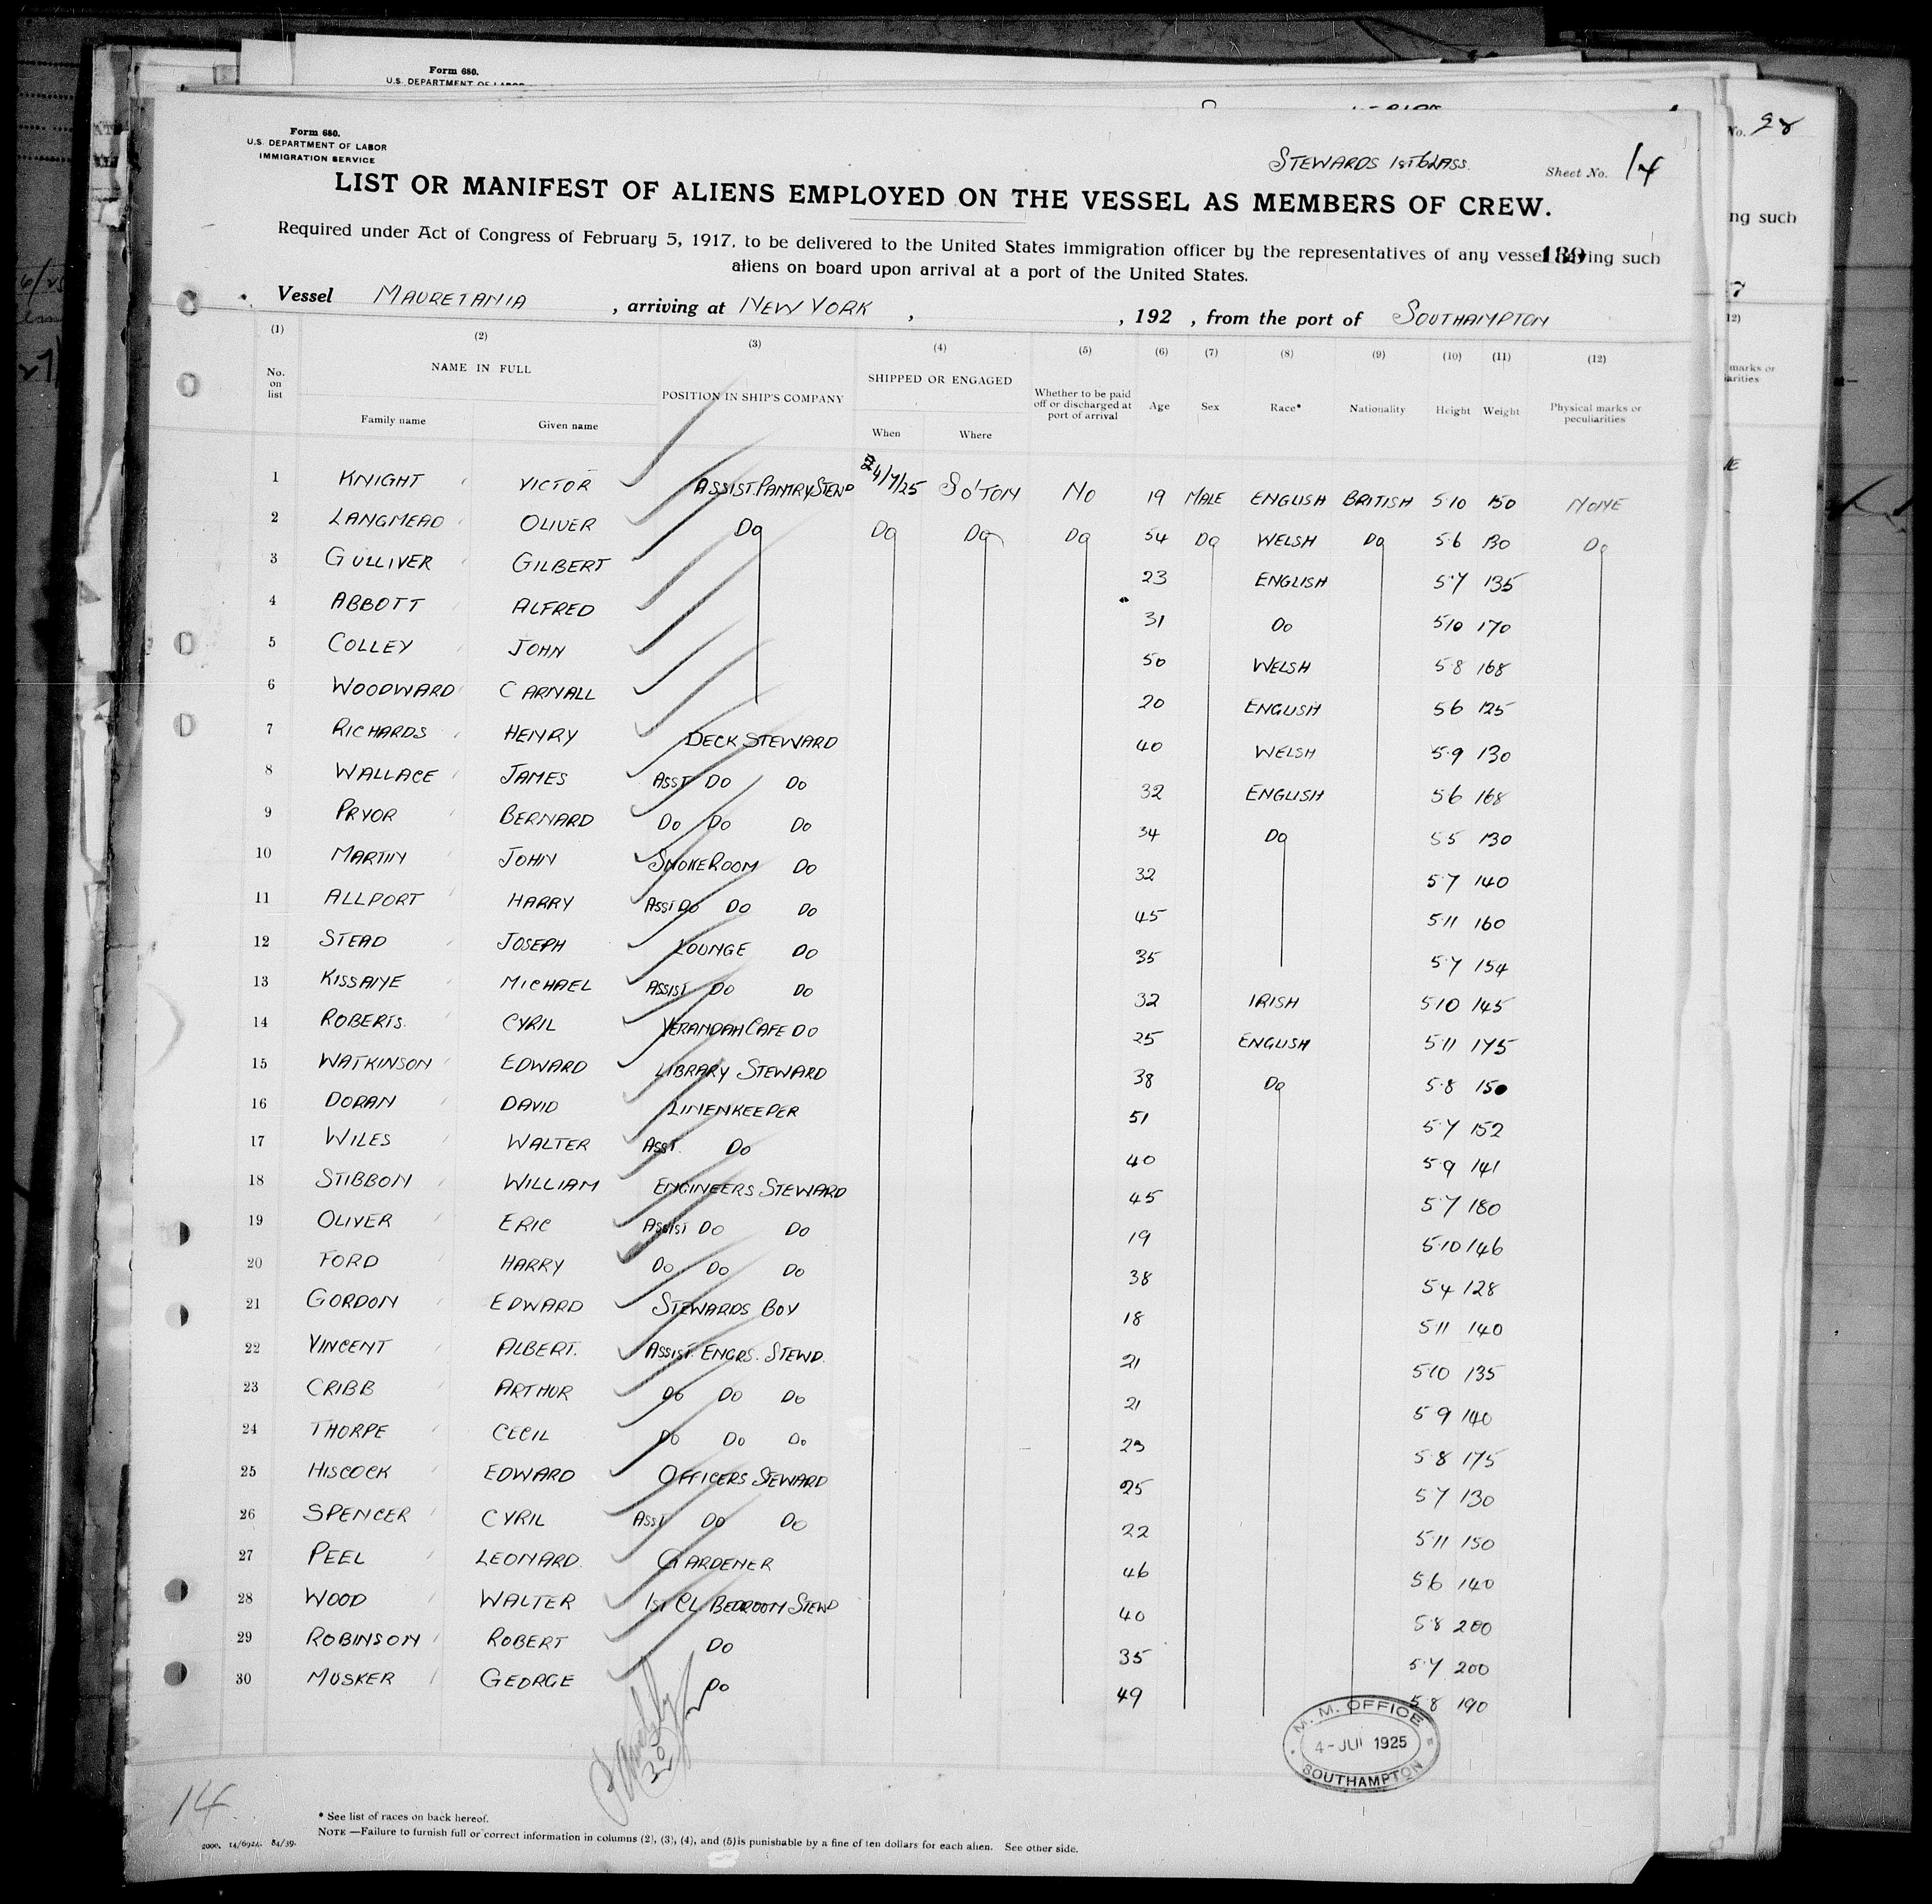 Form 680.
U.S. DEPARTMENT OF LABOR
Form 680.
U.S. DEPARTMENT OF LABOR
IMMIGRATION SERVICE
STEWARDS 1ST CLASS.
Sheet No. 14
No. 28
LIST OR MANIFEST OF ALIENS EMPLOYED ON THE VESSEL AS MEMBERS OF CREW.
ng such
Required under Act of Congress of February 5, 1917, to be delivered to the United States immigration officer by the representatives of any vessel having such
139
aliens on board upon arrival at a port of the United States.
Vessel MAURETANIA , arriving at NEW YORK , , 192 , from the port of SOUTHAMPTON
(1) (2) (3) (4) (5) (6) (7) (8) (9) (10) (11) (12)
No. on list NAME IN FULL POSITION IN SHIP'S COMPANY SHIPPED OR ENGAGED Whether to be paid off or discharged at port of arrival Age Sex Race* Nationality Height Weight Physical marks or peculiarities
Family name Given name When Where
1 KNIGHT VICTOR ASSIST. PANTRY STEWD 24/7/25 SO'TON NO 19 MALE ENGLISH BRITISH 5 10 150 NONE
2 LANGMEAD OLIVER DO DO DO DO 54 DO WELSH DO 5.6 130 DO
3 GULLIVER GILBERT 23 ENGLISH 5.7 135
4 ABBOTT ALFRED 31 DO 5 10 170
5 COLLEY JOHN 50 WELSH 5.8 168
6 WOODWARD CARNALL 20 ENGLISH 5 6 125
7 RICHARDS HENRY DECK STEWARD 40 WELSH 5.9 130
8 WALLACE JAMES ASST DO DO 32 ENGLISH 5 6 168
9 PRYOR BERNARD DO DO DO 34 DO 5 5 130
10 MARTIN JOHN SMOKE ROOM DO 32 5.7 140
11 ALLPORT HARRY ASST DO DO DO 45 5 11 160
12 STEAD JOSEPH LOUNGE DO 35 5.7 154
13 KISSANE MICHAEL ASSIST DO DO 32 IRISH 5 10 145
14 ROBERTS. CYRIL VERANDAH CAFE DO 25 ENGLISH 5.11 175
15 WATKINSON EDWARD LIBRARY STEWARD 38 DO 5.8 150
16 DORAN DAVID LINENKEEPER 51 5.7 152
17 WILES WALTER ASST. DO 40 5.9 141
18 STIBBON WILLIAM ENGINEERS STEWARD 45 5.7 180
19 OLIVER ERIC ASSIST DO DO 19 5.10 146
20 FORD HARRY DO DO DO 38 5 4 128
21 GORDON EDWARD STEWARDS BOY 18 5 11 140
22 VINCENT ALBERT. ASSIST. ENGRS. STEWD. 21 5 10 135
23 CRIBB ARTHUR DO DO DO 21 5 9 140
24 THORPE CECIL DO DO DO 23 5.8 175
25 HISCOCK EDWARD OFFICERS STEWARD 25 5 7 130
26 SPENCER CYRIL ASST DO DO 22 5 11 150
27 PEEL LEONARD. GARDENER 46 5 6 140
28 WOOD WALTER 1ST CL BEDROOM STEWD 40 5 8 200
29 ROBINSON ROBERT DO 35 5.7 200
30 MUSKER GEORGE DO 49 5 8 190
M. M. OFFICE
4 - JUL 1925
SOUTHAMPTON
14
* See list of races on back hereof.
NOTE —Failure to furnish full or correct information in columns (2), (3), (4), and (5) is punishable by a fine of ten dollars for each alien. See other side.
2000. 14/6924. 84/39.